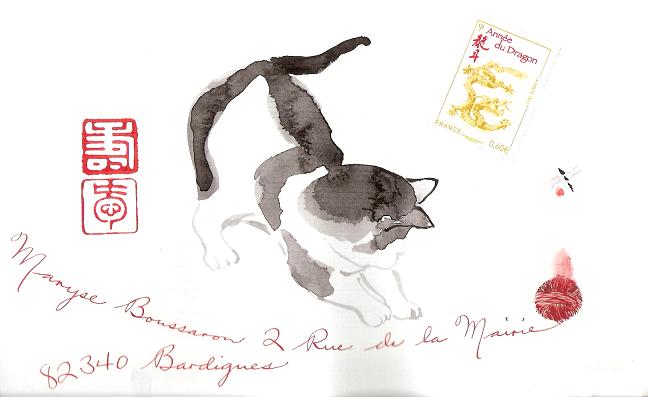 Année
du Dragon
FRANCE
0,60€
Maryse Boussaron 2 Rue de la Mairie
82340 Bardigues